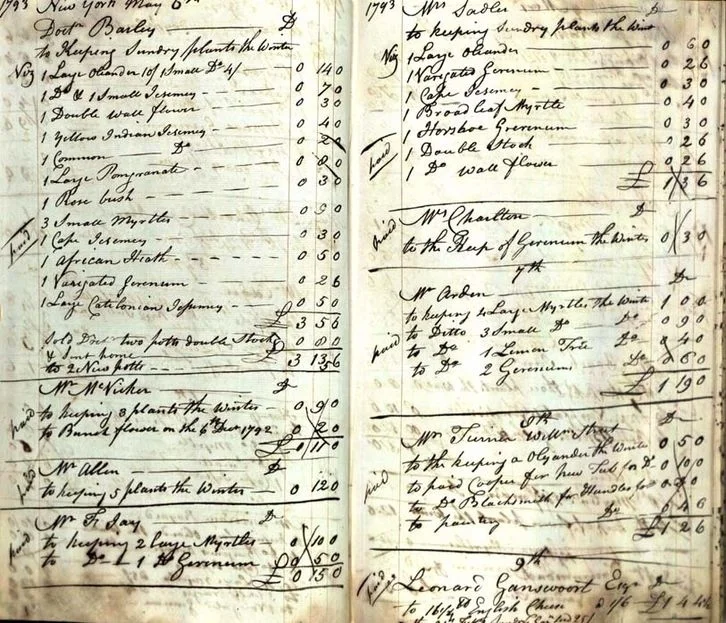 1793 New York May 6th
Doctr Bailey D
to Keeping Sundry plants the Winter
Viz 1 Large Oleander 10/ 1 Small Do 4/ 0 14 0
1 Do & 1 Small Jesemey 0 7 0
1 Double Wall flower 0 3 0
1 Yellow Indian Jesemey 0 4 0
1 Common Do 0 2 0
1 Large Pomgranate 0 8 0
1 Rose bush 0 3 0
3 Small Myrtles 0 9 0
1 Cape Jesemey 0 3 0
1 African Heath 0 5 0
1 Varigated Gerenium 0 2 6
1 Large Catilonian Jessemey 0 5 0
paid
£ 3 5 6
Sold Doctr two potts double Stock 0 8 0
& Sent home
to 2 New potts
£ 3 13 6
Mr McVicker D
to keeping 3 plants the Winter 0 9 0
to Bunch flower on the 6th Decr 1792 0 2 0
paid
£ 0 11 0
Mr Allen D
paid to keeping 5 plants the Winter 0 12 0
Mr Fr Jay D
paid to keeping 2 large Myrtles 0 10 0
to Do 1 Do Gerenium 0 5 0
£ 0 15 0
1793 Mrs Sadler D
to keeping Sundry plants the Wint
Viz 1 Large Oleander 0 6 0
1 Varigated Gerenium 0 2 6
1 Cape Jesemey 0 3 0
1 Broad leaf Myrtle 0 4 0
1 Horshoe Gerenium 0 3 0
1 Double Stock 0 2 6
1 Do Wall flower 0 2 6
paid
£ 1 3 6
Mrs Charlton D
paid to the Keep of Gerenium the Winter 0 3 0
7th
Mr Arden Dr
to keeping 4 Large Myrtles the Winte 1 0 0
to Ditto 3 Small Do 0 9 0
paid to Do 1 Lemon Tree Do 0 4 0
to Do 2 Gereniums Do 0 6 0
£ 1 19 0
8th
Mr Turner Willm Street D
to the keeping a Oleander the Winter 0 5 0
paid to paid Cooper for New Tub for Do 0 10 0
to Do Blacksmith for Handles for
to painting Do 0 4 6
£ 1 2 6
9th
paid
Leonard Gansevoort Esqr D
to 16 1/4 lb English Cheese @ 1/6 £1 4 4½